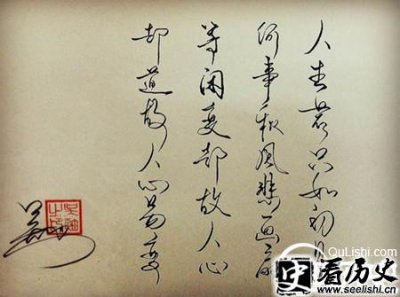 人生若只如初见
何事秋风悲画扇
等闲变却故人心
却道故人心易变
QuLishi.com
看历史
www.seelishi.com